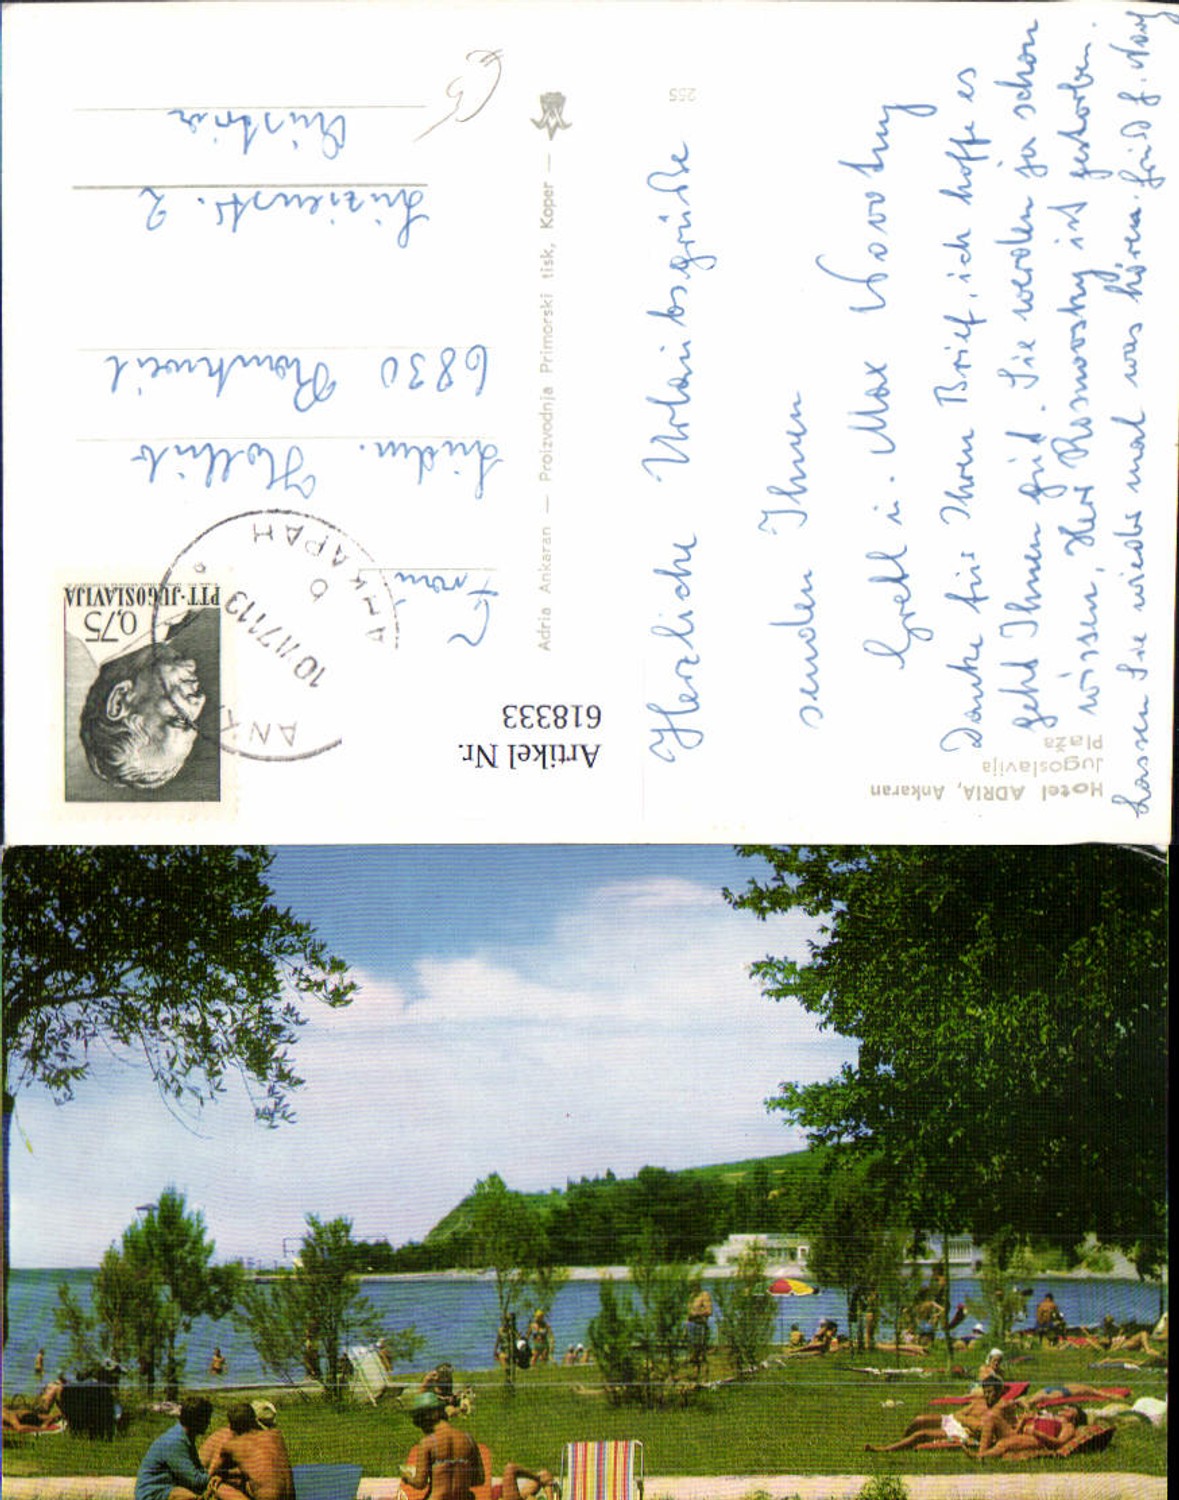 Hotel ADRIA, Ankaran
Jugoslavija
Plaža
Artikel Nr.
618333
Herzliche Urlaubsgrüße
senden Ihnen
Gretl u. Max Novotny
Danke für Ihren Brief, ich hoffe es
geht Ihnen gut. Sie werden ja schon
wissen, Herr Rosmovsky ist gestorben.
Lassen Sie wieder mal was hören.
255
Adria Ankaran — Proizvodnja Primorski tisk, Koper —
PTT·JUGOSLAVIJA
0,75
АНКАРАН
ANK
6
Frau
6830 Rankweil
Austria